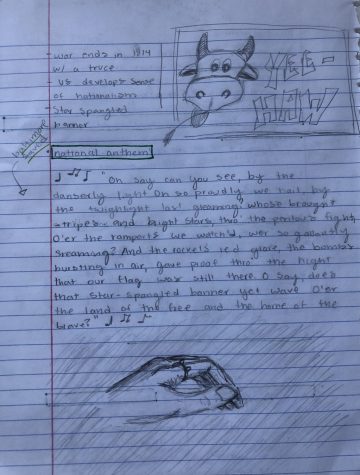 - war ends in 1814
w/ a truce
US develops sense
of nationalism
- Star spangled
banner
YEE-
HAW
national anthem
"Oh say can you see, by the
danserly light Oh so proudly we hail, by
the twighlight last gleaming, whose brought
stripes and bright stars, thro the perilous fight,
O'er the ramparts we watch'd, wer so gallantly
streaming? And the rockets red glare, the bombs
bursting in air, gave proof thro' the night
that our flag was still there. O say, does
that star-spangled banner yet wave O'er
the land of the free and the home of the
brave?"